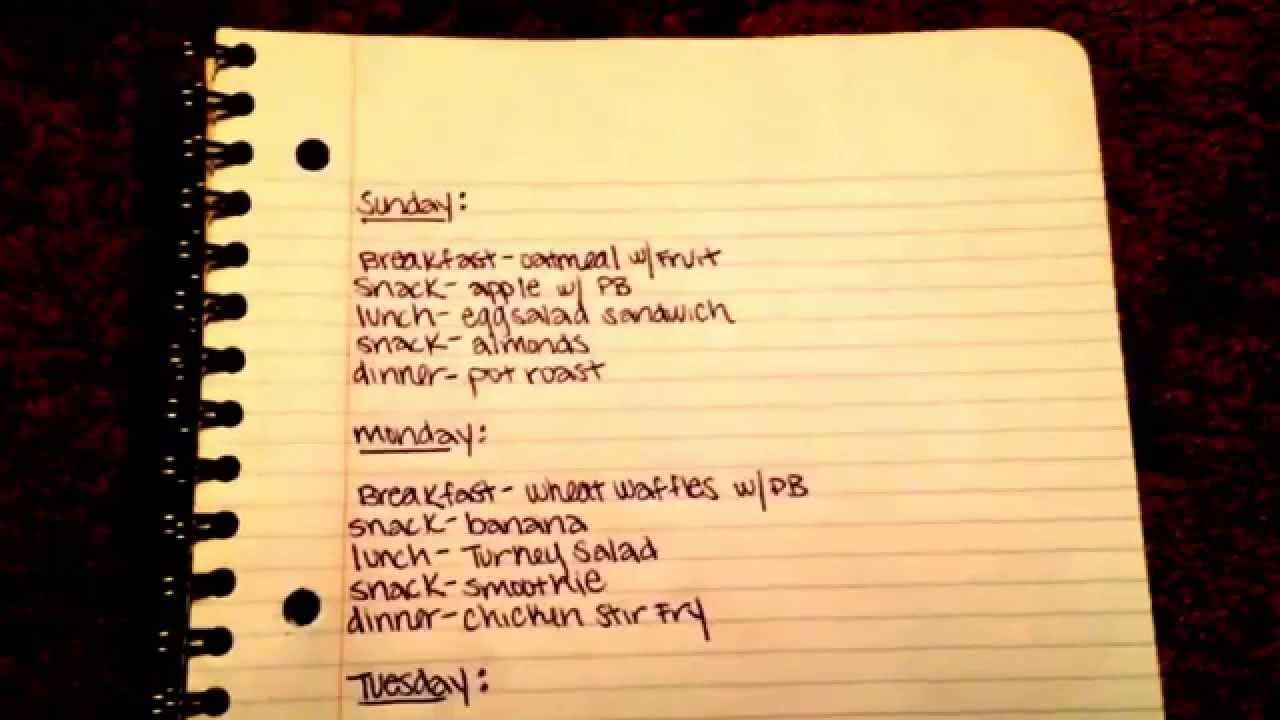 Sunday:
Breakfast- oatmeal w/ Fruit
snack- apple w/ PB
lunch- eggsalad sandwich
snack- almonds
dinner- pot roast
monday:
Breakfast- wheat waffles w/ PB
snack- banana
lunch- Turkey Salad
snack- smoothie
dinner- chicken Stir Fry
Tuesday: